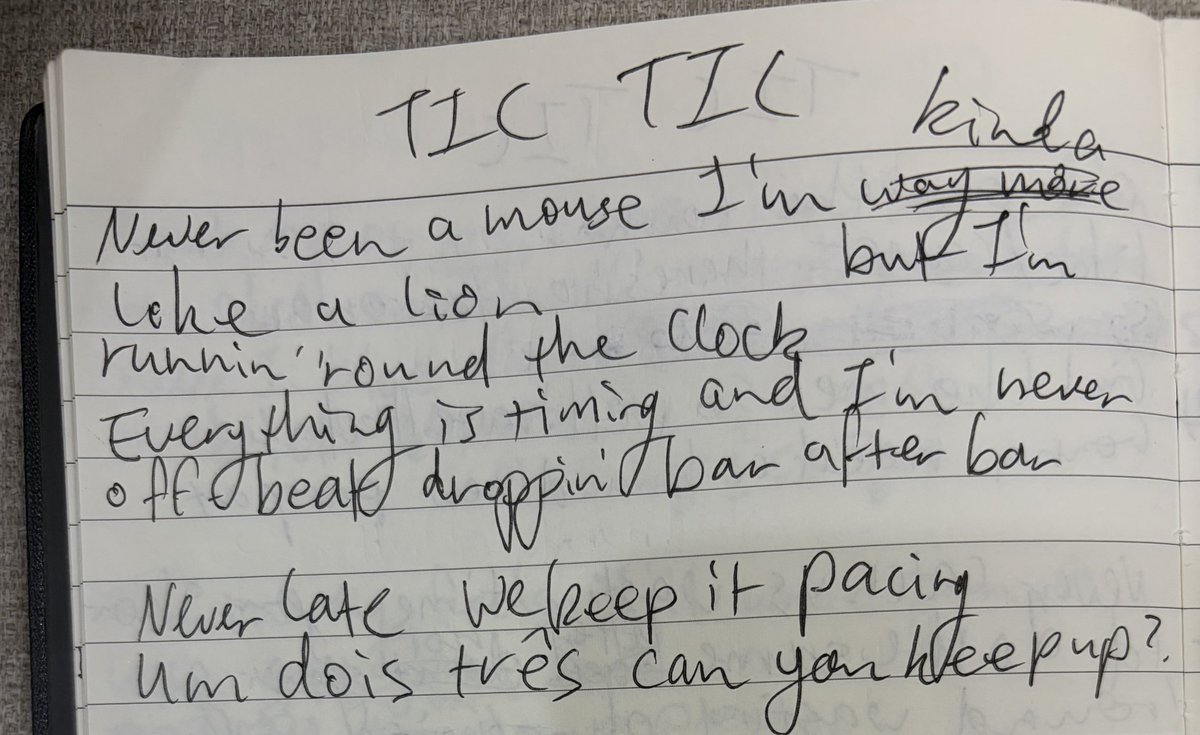 TIC TIC
kinda
Never been a mouse I'm way more
but I'm
like a lion
runnin' 'round the Clock
Everything is timing and I'm never
off beat droppin' bar after bar
Never late we keep it pacing
um dois três can you keep up?